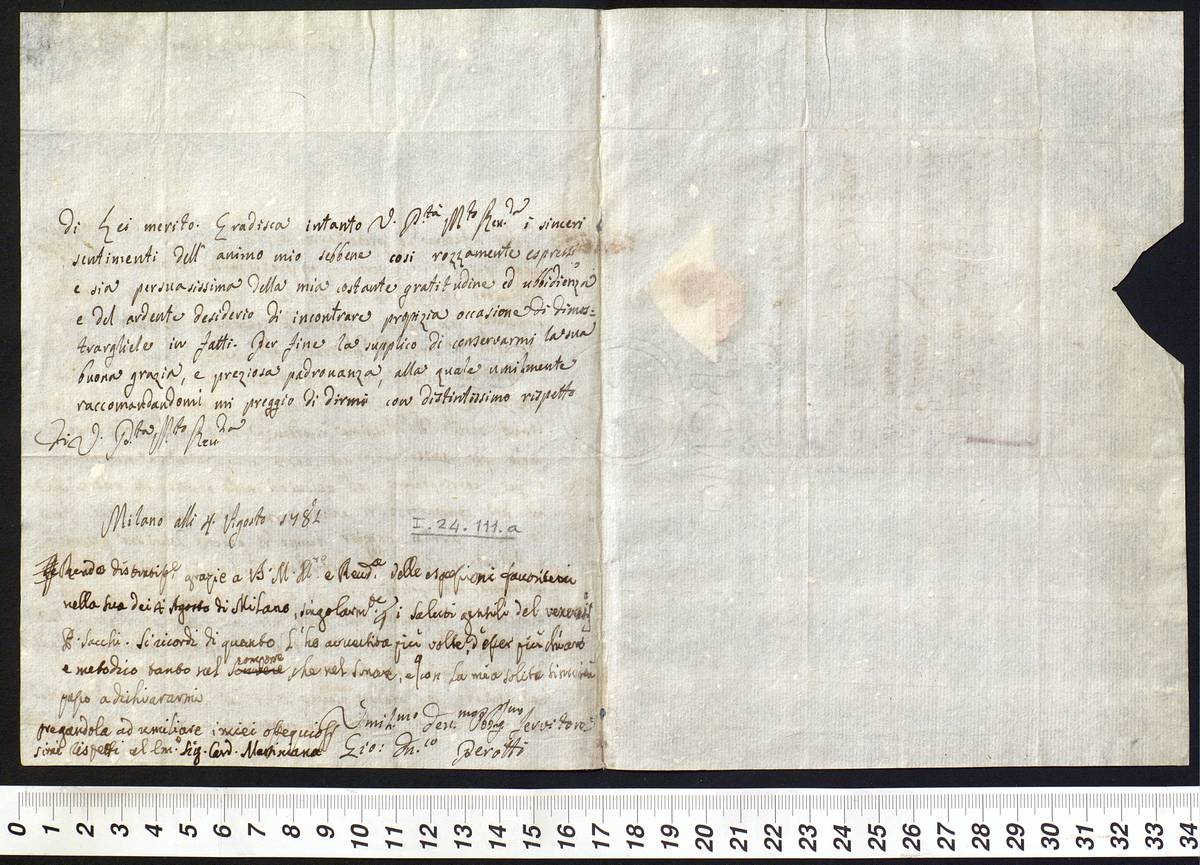 di Lei merito. Gradisca intanto V. P.tà M.to Rev.da i sinceri
sentimenti dell' animo mio sebbene cosi rozzamente espressi
e sia persuasissima della mia costante gratitudine ed ubbidienza
e del ardente desiderio di incontrare propizia occasione di dimos=
trargliele in fatti. Per fine la supplico di conservarmi la sua
buona grazia, e preziosa padronanza, alla quale umilmente
raccomandandomi mi preggio di dirmi con distintissimo rispetto
Di V. P.tà M.to Rev.da
Milano alli 4. Agosto 1782
I.24.111.a
Rendo grazie a V. M. e Rev.da delle espressioni favoritemi
nella sua dei 4 Agosto di Milano, singolarm.te i saluti gentili del
P. Sacchi. Si ricordi di quanto L'ho avvertita più volte, d'esser più chiaro
e metodico tanto nel comporre, che nel sonare, e con la mia solita
passo a dichiararmi
pregandola ad umiliare i miei ossequiosis
simi rispetti al Sig. Card. Martiniana
Umil.mo Dev.mo Obblig.mo Servitore
Gio: Dn.co Perotti
0 1 2 3 4 5 6 7 8 9 10 11 12 13 14 15 16 17 18 19 20 21 22 23 24 25 26 27 28 29 30 31 32 33 34